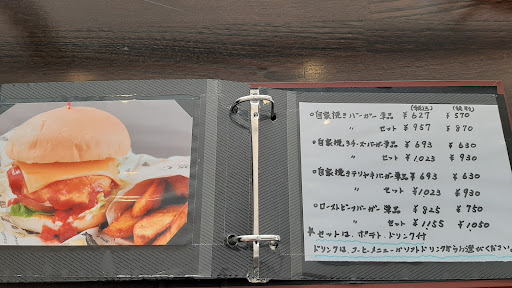 (税込) (税別)
○自家焼きバーガー 単品 ¥627 ¥570
〃 セット ¥957 ¥870
○自家焼きチーズバーガー単品 ¥693 ¥630
〃 セット ¥1023 ¥930
○自家焼きテリヤキバーガー単品 ¥693 ¥630
〃 セット ¥1023 ¥930
○ローストビーフバーガー 単品 ¥825 ¥750
〃 セット ¥1155 ¥1050
★セットは、ポテト、ドリンク付
ドリンクは、コーヒーメニューかソフトドリンクからお選びください。